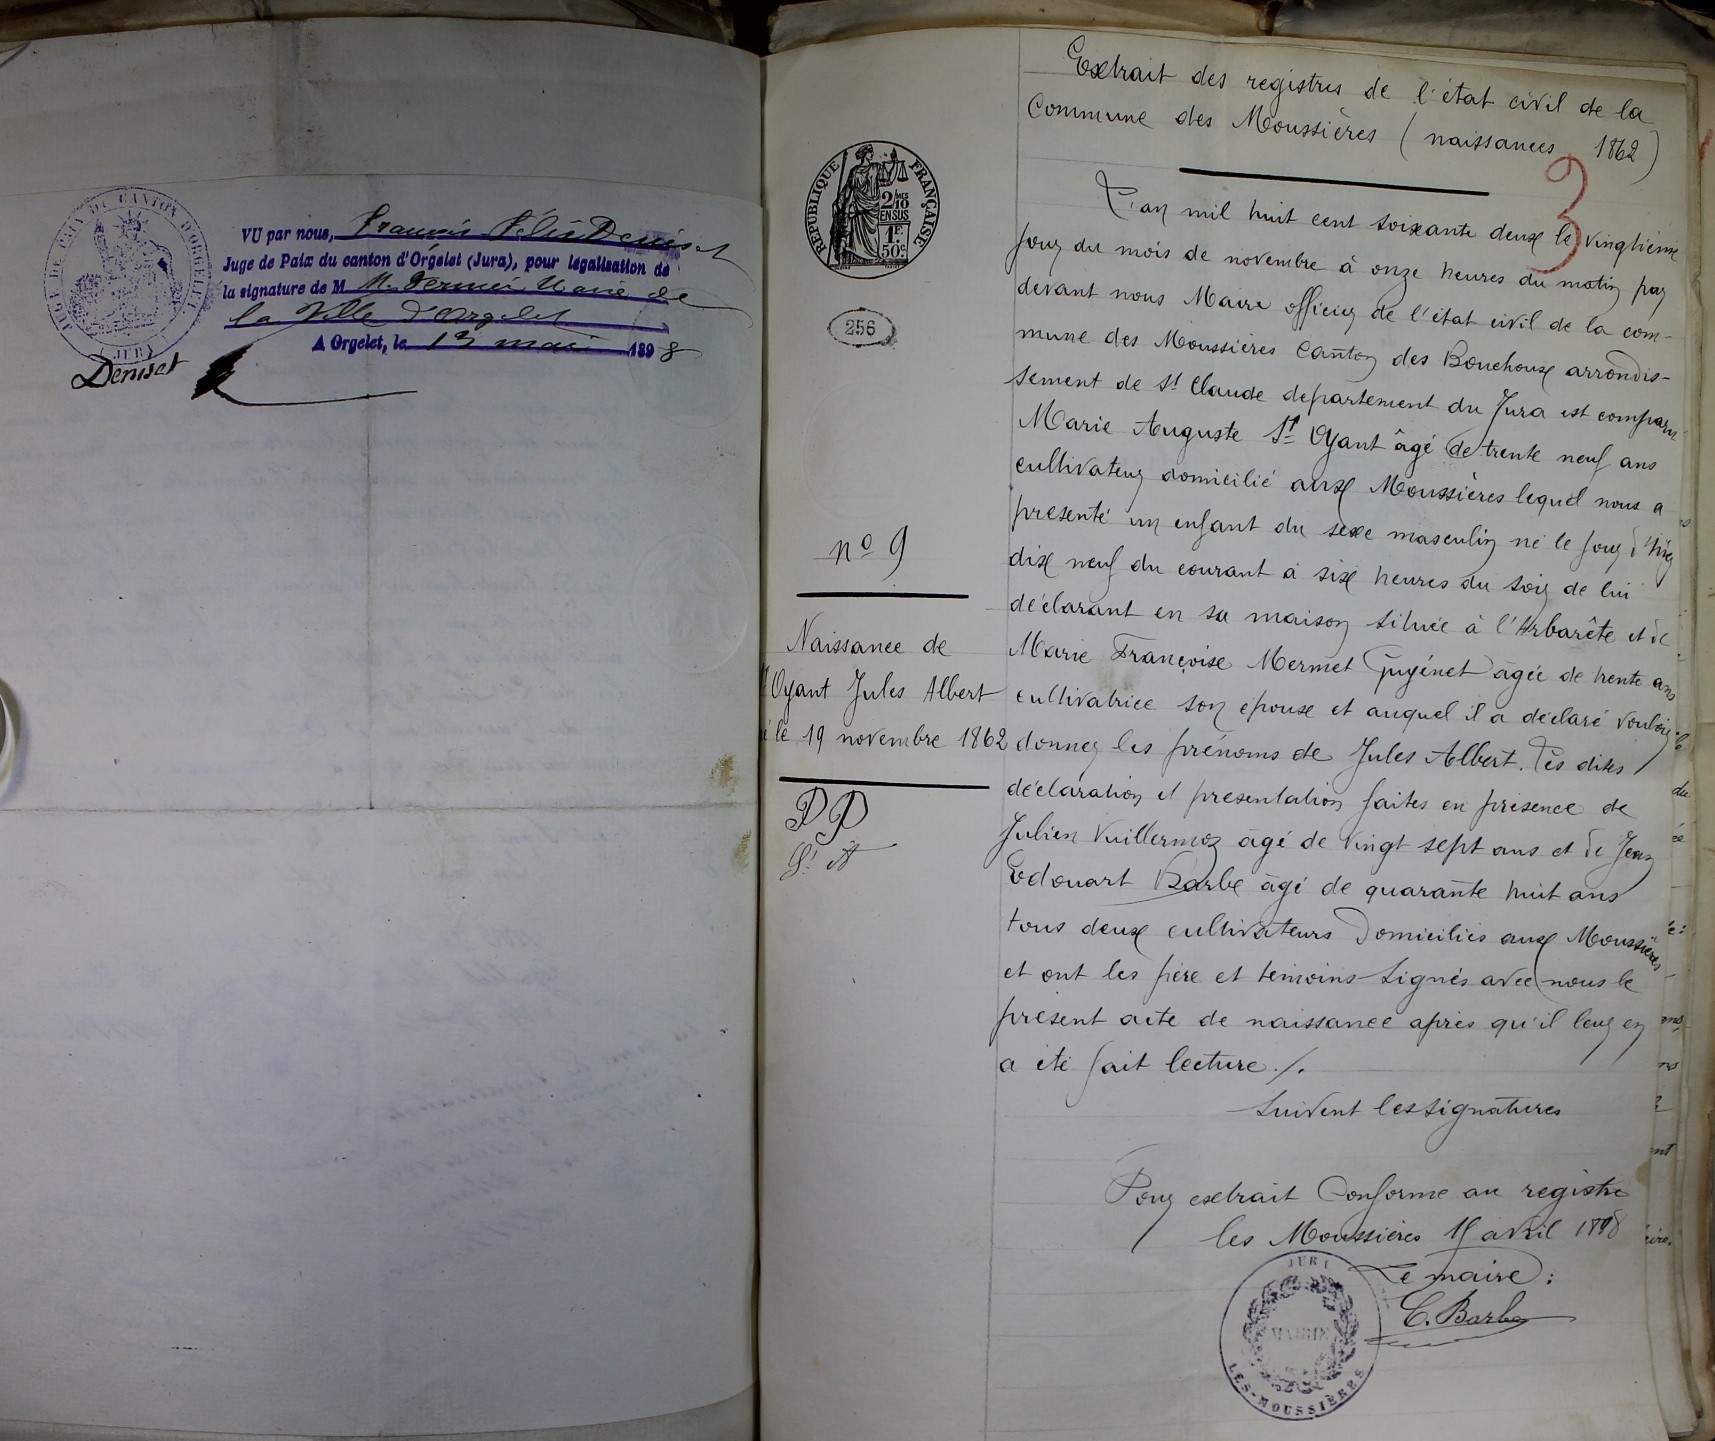 JUGE DE PAIX DU CANTON D'ORGELET
( JURA )
VU par nous, Francois Félix Deniset
Juge de Paix du canton d'Orgelet (Jura), pour légalisation de
la signature de M M. Maire de
la Ville d'Orgelet
A Orgelet, le 13 mai 1898
Deniset
REPUBLIQUE FRANÇAISE
2/10 EN SUS
1F. 50c.
256
nº 9
Naissance de
Oyant Jules Albert
le 19 novembre 1862
PP
St A
3
Extrait des registres de l'état civil de la
Commune des Moussières (naissances 1862)
L'an mil huit cent soixante deux le vingtième
jour du mois de novembre à onze heures du matin par
devant nous Maire officier de l'état civil de la com-
mune des Moussières Canton des Bouchoux arrondis-
sement de St Claude departement du Jura est comparu
Marie Auguste St Oyant âgé de trente neuf ans
cultivateur domicilié aux Moussières lequel nous a
présenté un enfant du sexe masculin né le jour d'hier
dix neuf du courant à six heures du soir de lui
déclarant en sa maison située à l'Arbarête et de
Marie Françoise Mermet Guyénet âgée de trente ans
cultivatrice son epouse et auquel il a déclaré vouloir
donner les prénoms de Jules Albert. Les dites
déclaration et présentation faites en présence de
Julien Vuillermoz âgé de vingt sept ans et de Jean
Edouart Barbe âgé de quarante huit ans
tous deux cultivateurs domiciliés aux Moussières
et ont les père et témoins signés avec nous le
présent acte de naissance après qu'il leur en
a été fait lecture ./.
Suivent les signatures
Pour extrait Conforme au registre
les Moussières avril 1898
Le maire :
C. Barbe
JURA
MAIRIE
LES-MOUSSIÈRES